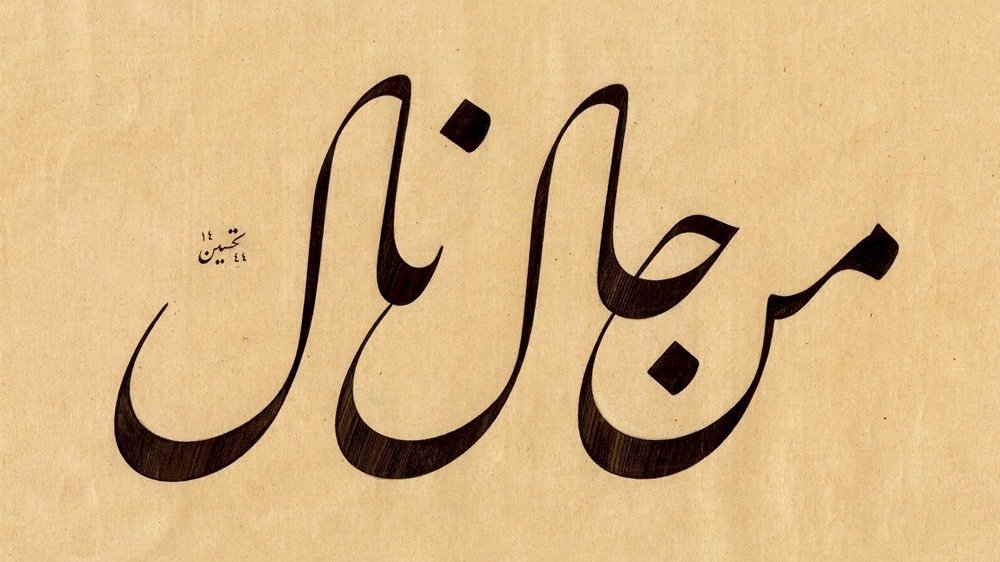 من جال نال
تحسين ١٤٤٤